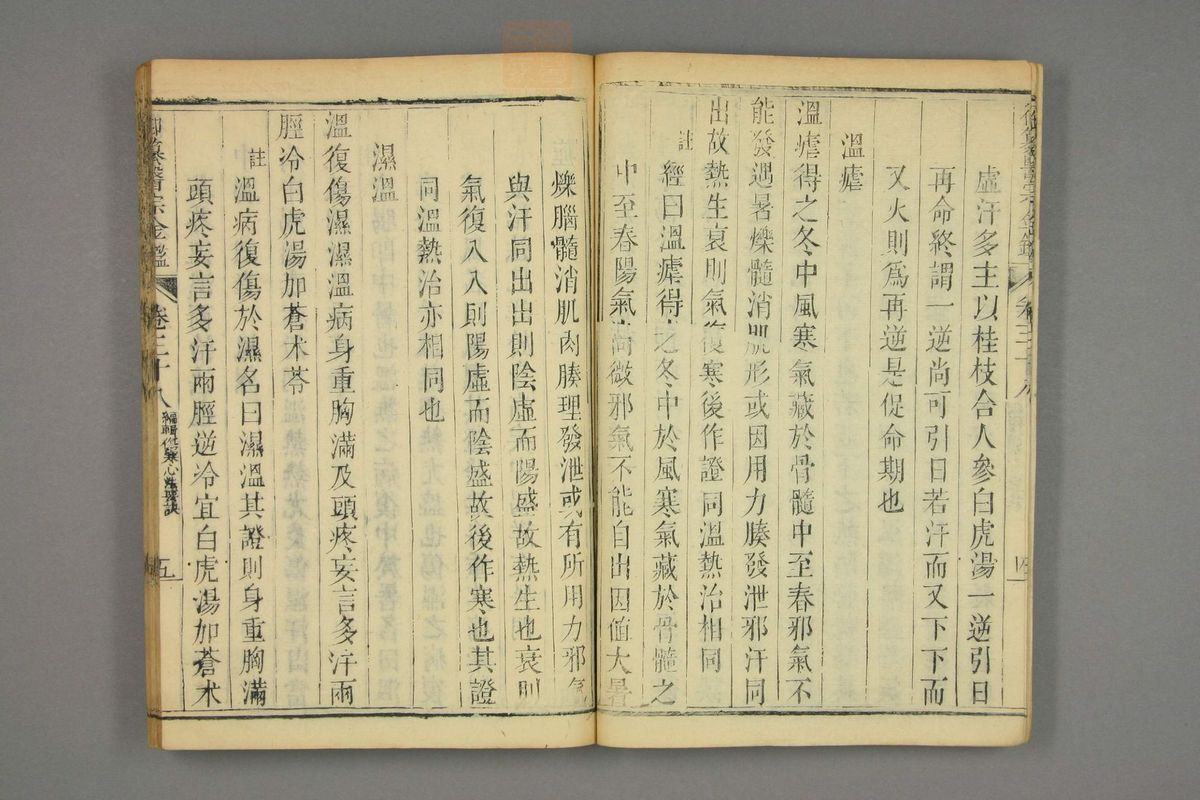 虛汗多主以桂枝合人參白虎湯一逆引日
再命終謂一逆尚可引日若汗而又下下而
又火則爲再逆是促命期也
溫瘧
溫瘧得之冬中風寒氣藏於骨髓中至春邪氣不
能發遇暑爍髓消肌形或因用力腠發泄邪汗同
出故熱生衰則氣復寒後作證同溫熱治相同
註
經曰溫瘧得之冬中於風寒氣藏於骨髓之
中至春陽氣尚微邪氣不能自出因值大暑
爍腦髓消肌肉腠理發泄或有所用力邪氣
與汗同出出則陰虛而陽盛故熱生也衰則
氣復入入則陽虛而陰盛故後作寒也其證
同溫熱治亦相同也
濕溫
溫復傷濕濕溫病身重胸滿及頭疼妄言多汗兩
脛冷白虎湯加蒼朮苓
註
溫病復傷於濕名曰濕溫其證則身重胸滿
頭疼妄言多汗兩脛逆冷宜白虎湯加蒼朮
御纂醫宗金鑑
卷三十八
編輯傷寒心法要訣
五